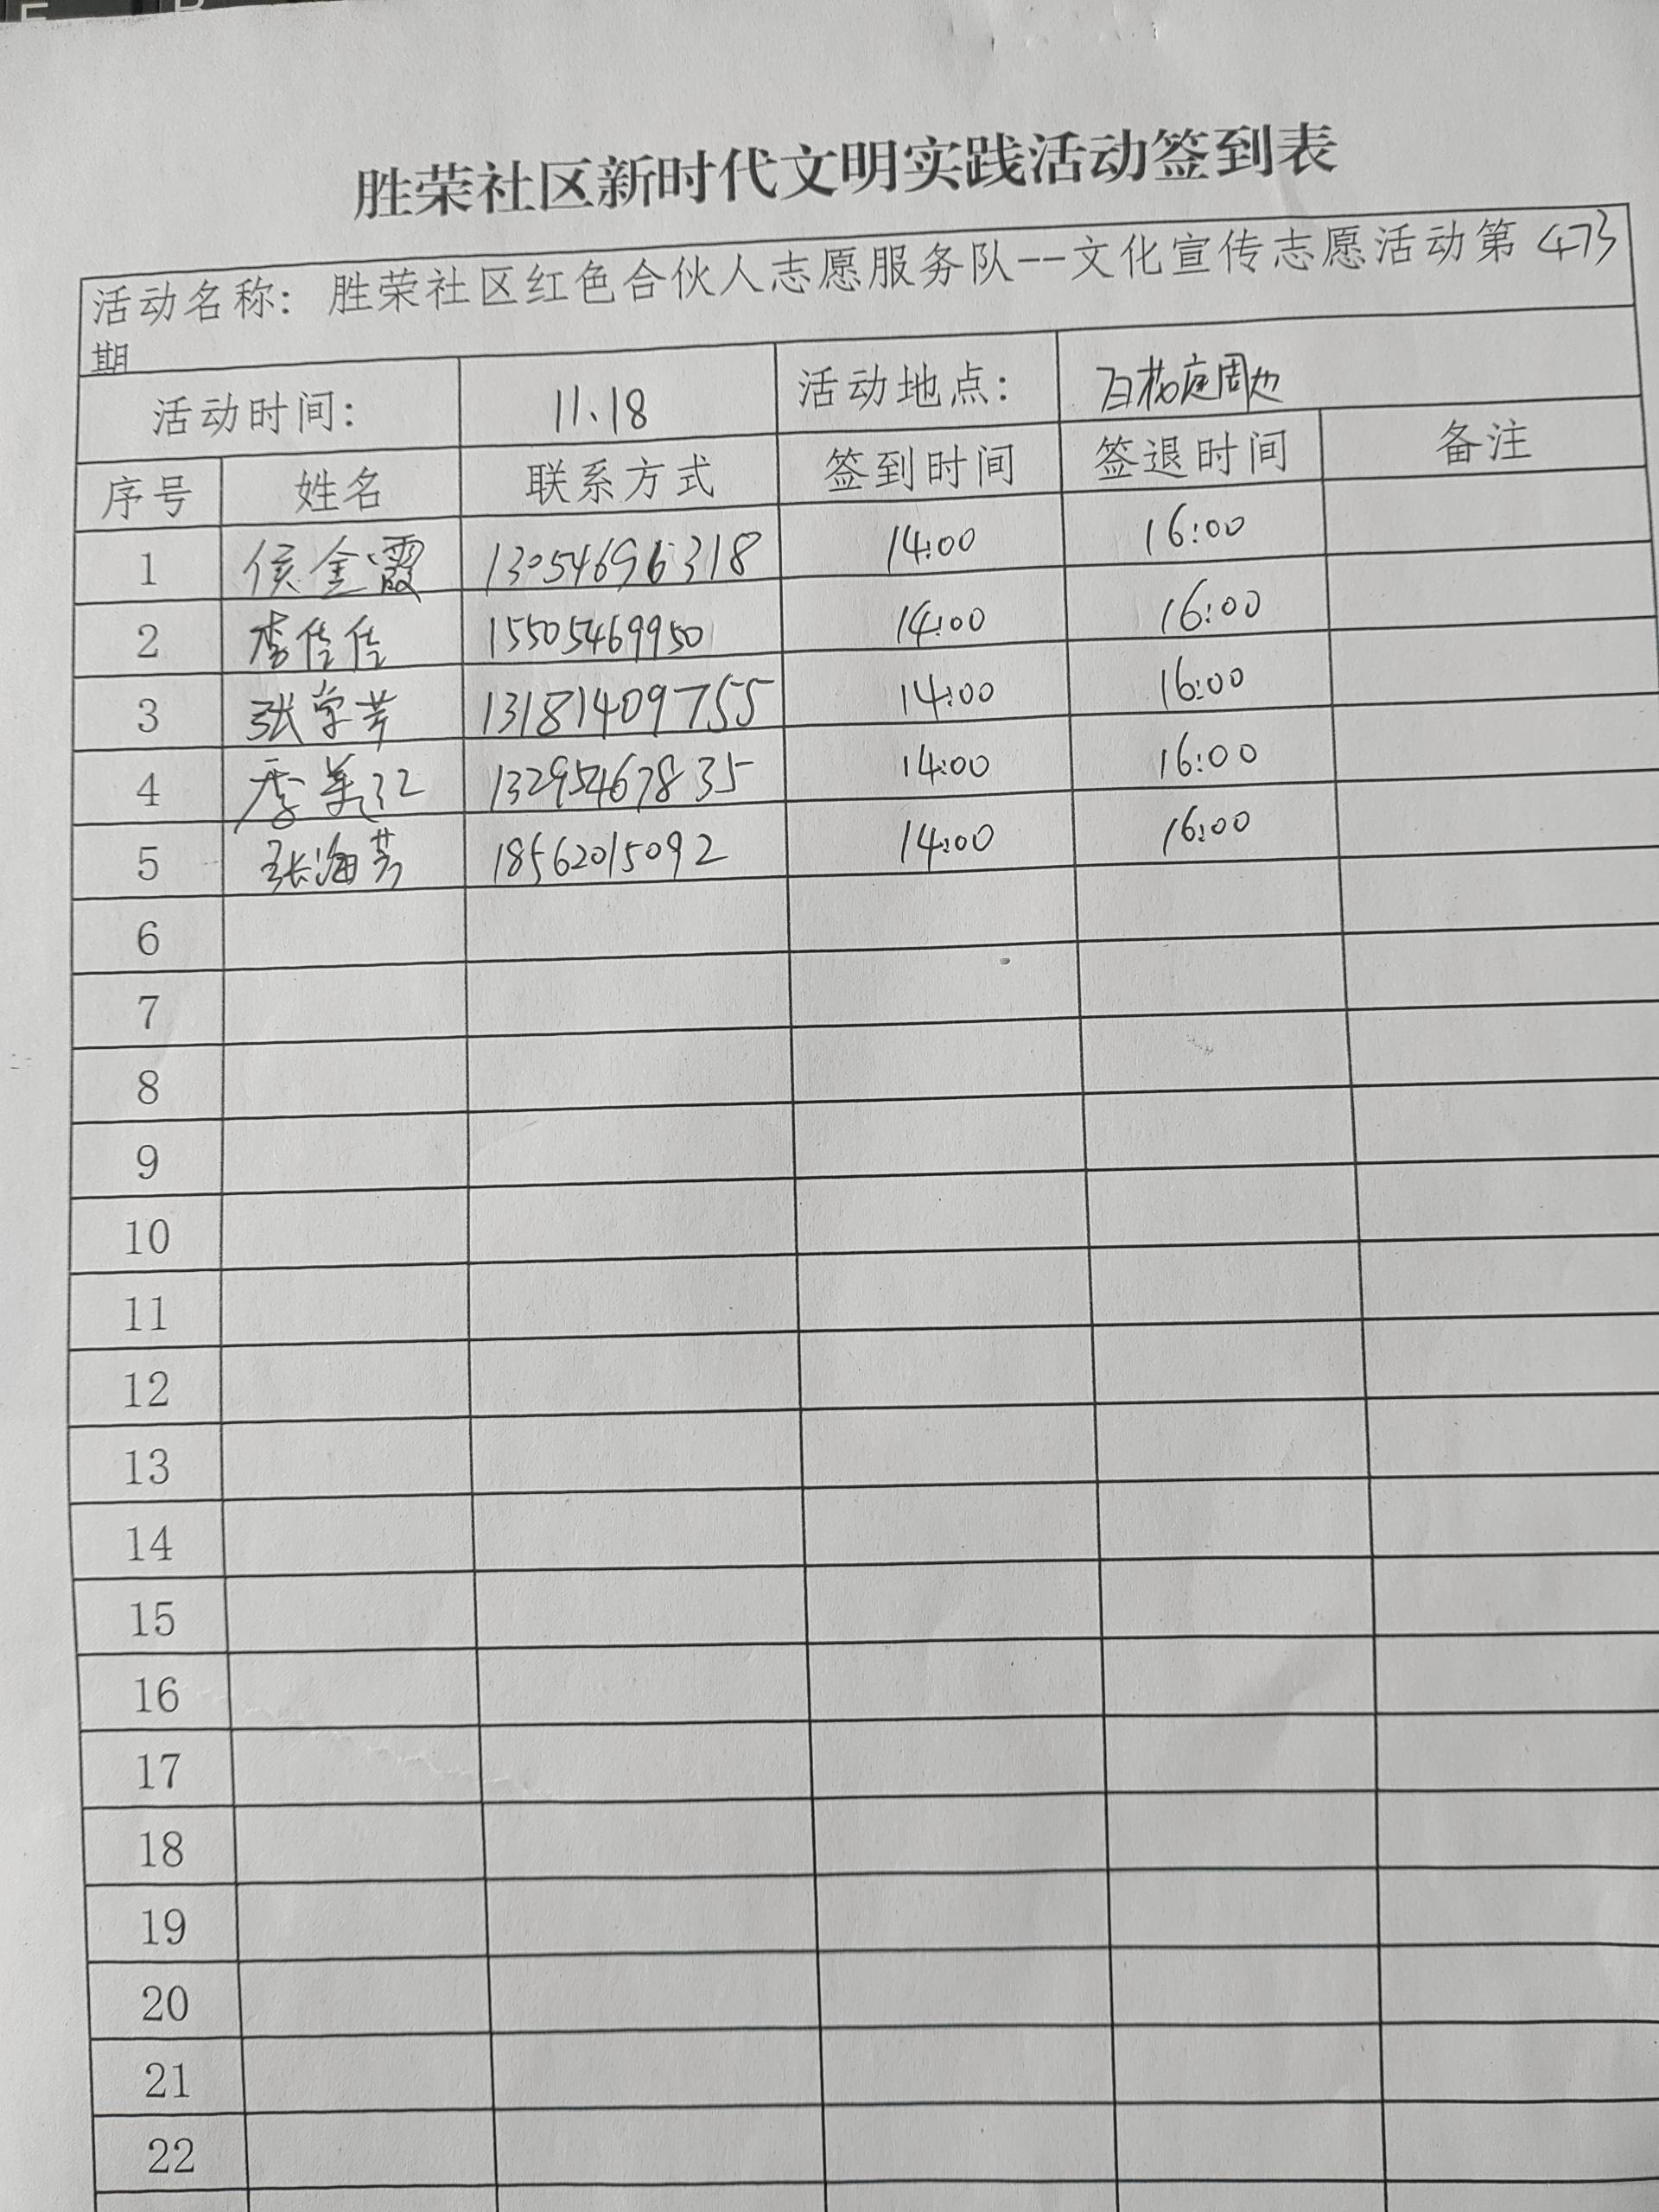 胜荣社区新时代文明实践活动签到表
活动名称：胜荣社区红色合伙人志愿服务队--文化宣传志愿活动第 473
期
活动时间： 11.18 活动地点： 周边
序号 姓名 联系方式 签到时间 签退时间 备注
1 侯金霞 13054696318 14:00 16:00
2 李佳佳 15505469950 14:00 16:00
3 张学芳 13181409755 14:00 16:00
4 季美江 13295467835 14:00 16:00
5 张海芳 18562015092 14:00 16:00
6
7
8
9
10
11
12
13
14
15
16
17
18
19
20
21
22